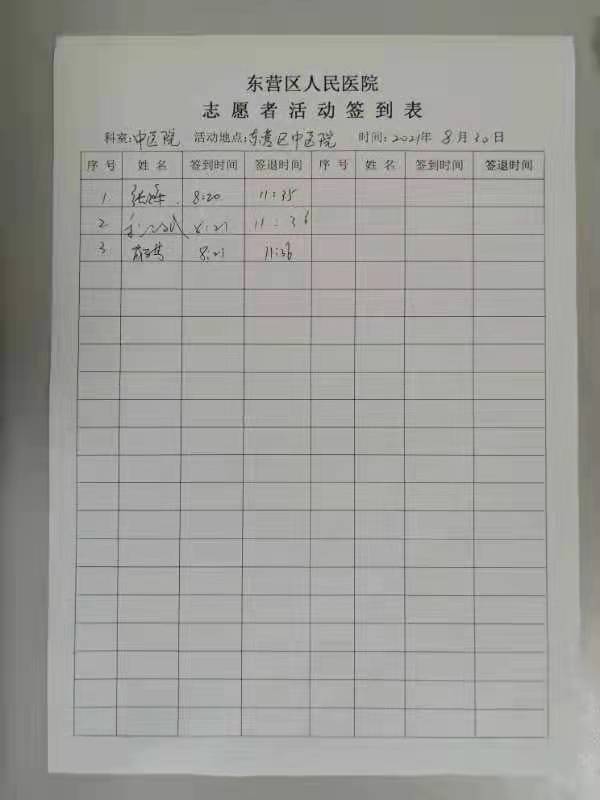 东营区人民医院
志愿者活动签到表
科室:中医院 活动地点:东营区中医院 时间:2021年 8月30日
序号 姓名 签到时间 签退时间 序号 姓名 签到时间 签退时间
1 8:20 11:35
2 8:21 11:36
3 8:21 11:36